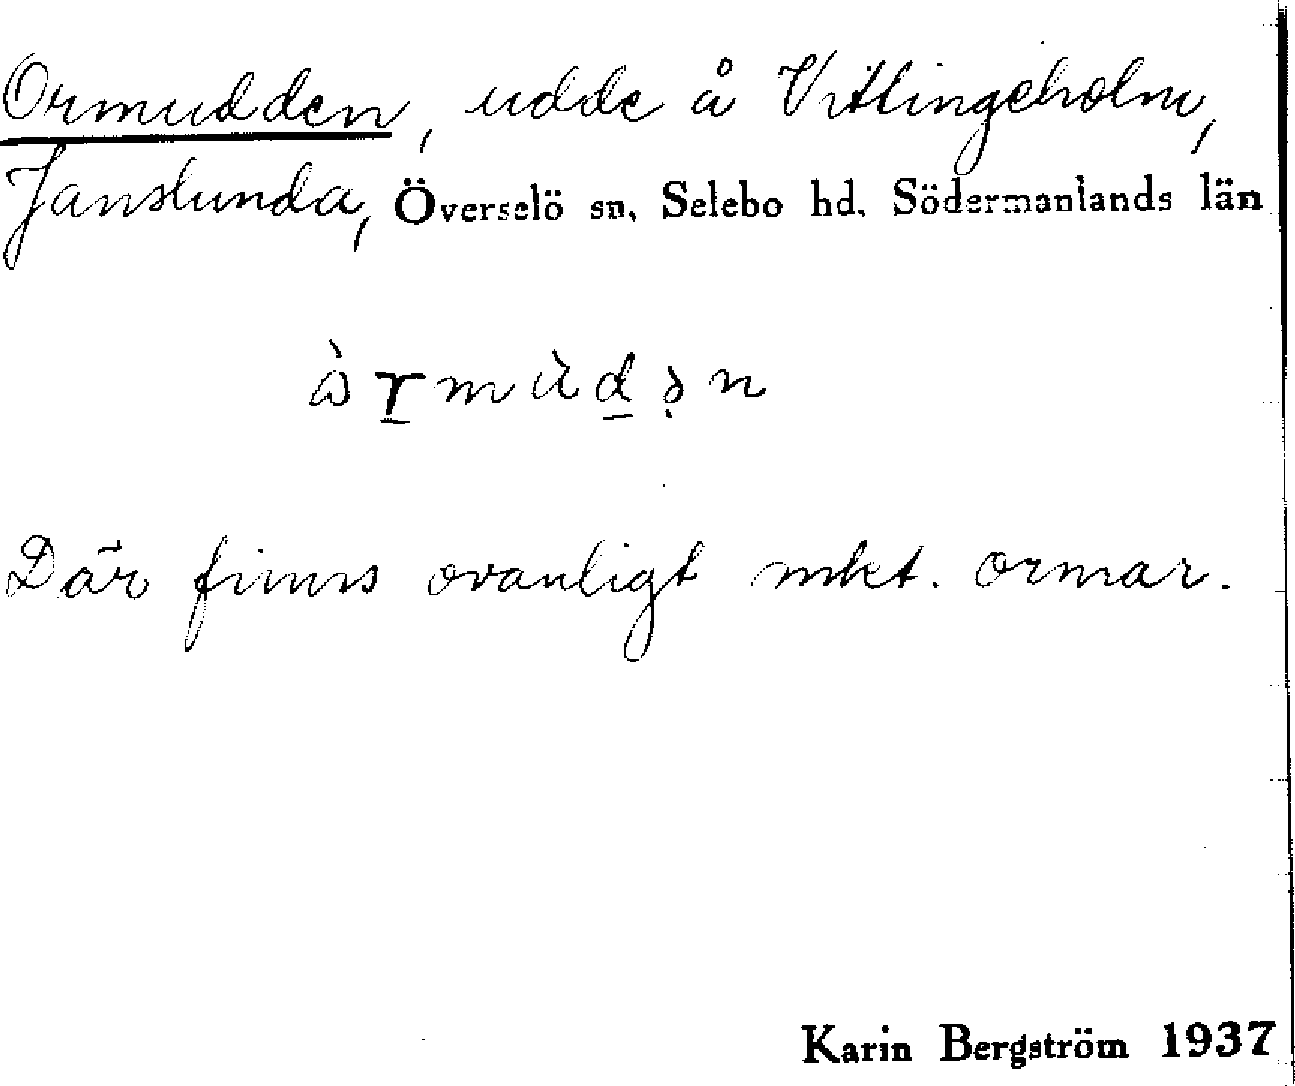 Ormudden, udde å Vitlingeholm,
Janslunda, Överselö sn, Selebo hd. Södermanlands län
Där finns ovanligt mkt. ormar.
Karin Bergström 1937